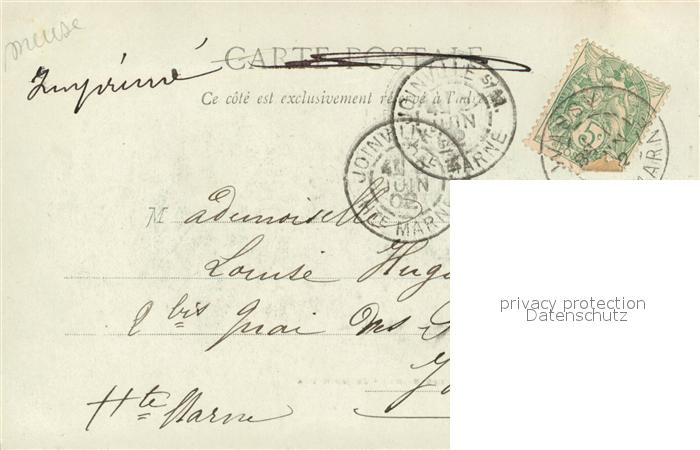 meuse
CARTE POSTALE
Imprimé
Ce côté est exclusivement réservé à l'adres
JOINVILLE S/M.
JUIN
HTE MARNE
JOINV
JUIN
02
HTE MARNE
5c
Mademoiselle
Louise Hug
bis Quai des
Hte Marne
privacy protection
Datenschutz